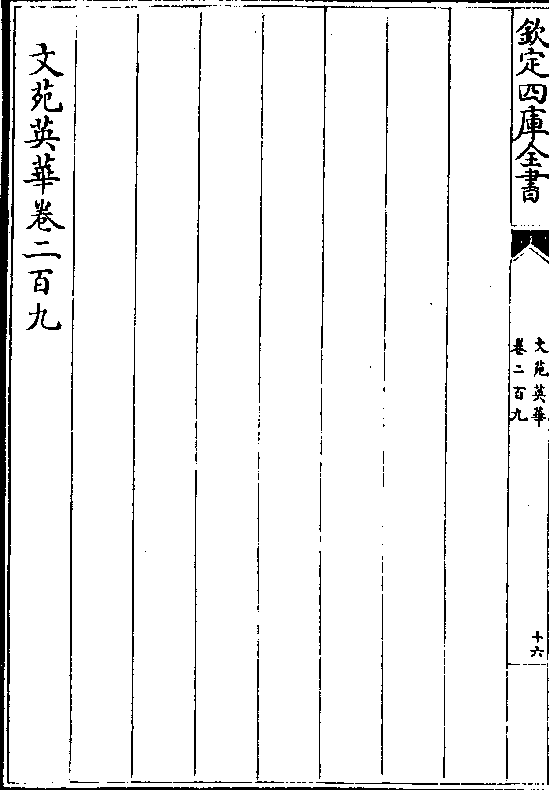 欽定四庫全書
文苑英華
卷二百九
十六
文苑英華卷二百九